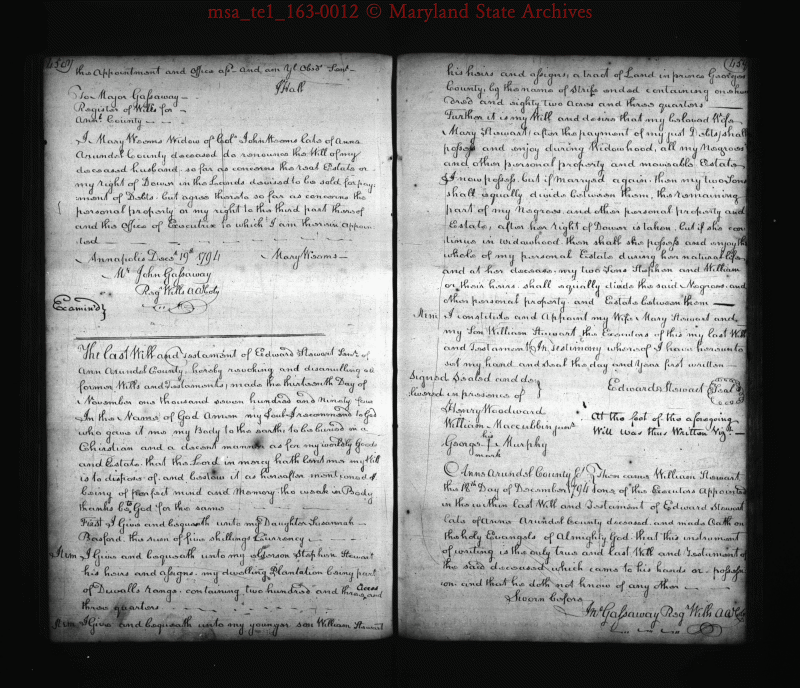 msa_te1_163-0012 © Maryland State Archives
450
this Appointment and Office afsd. and am Yr. Obedt. Servt.
J Hall
To Major Gassaway
Register of Wills for
Annl. County
I Mary Weems Widow of Colo. John Weems late of Anne
Arundel County deceased do renounce the Will of my
deceased husband, so far as concerns the real Estate or
my right of Dower in the Lands devised to be sold for pay-
ment of Debts but agree thereto so far as concerns the
personal property or my right to the third part thereof
and the Office of Executrix to which I am therein appoin-
ted
Annapolis Decr. 19th 1794 Mary Weems
Mr. John Gassaway
Regr. Wills A A Coty
Examined
The last Will and Testament of Edward Stewart Senr. of
Ann Arundel County, hereby revoking and disanulling all
former Wills and Testaments; made this thirteenth Day of
November one thousand seven hundred and Ninety four
In the Name of God Amen my Soul I recommend to God
who gave it me my Body to the earth to be buried in a
Christian and a decent manner as for my worldly Goods
and Estate that the Lord in mercy hath lent me my Will
is to dispose of and bestow it as hereafter mentioned &
being of perfect mind and Memory tho weak in Body
thanks be to God for the same
First I Give and bequeath unto my Daughter Susannah
Basford the sum of five shillings Currency
Item I Give and bequeath unto my Son Stephen Stewart
his heirs and assigns my dwelling Plantation being part
of Duvalls range containing two hundred and three Acres and
three quarters
Item I Give and bequeath unto my younger son William Stewart
451
his heirs and assigns, a tract of Land in prince Georges
County, by the name of Strife ended containing one hun
dred and eighty two Acres and three quarters
Further it is my Will and desire that my beloved Wife
Mary Stewart after the payment of my just Debts, shall
possess and enjoy during Widowhood, all my Negroes
and other personal property and moveable Estate
I now possess, but if Married again then my two Sons
shall equally divide between them, the remaining
part of my Negroes and other personal property and
Estate, after her right of Dower is taken, but if she con
tinues in widowhood then shall she possess and enjoy the
whole of my personal Estate during her natural life
and at her decease my two Sons Stephen and William
or their heirs shall equally divide the said Negroes and
other personal property and Estate between them
Item I constitute and Appoint my Wife Mary Stewart and
my Son William Stewart, the Executors of this my last Will
and Testament In testimony whereof I have hereunto
set my hand and Seal the day and Years first written
Signed Sealed and de
livered in presence of
Edward Stewart Seal
Henry Woodward
William Maccubbin junr.
his
George Murphy
mark
At the foot of the aforegoing
Will was thus Written Vizt.
Anne Arundel County Sct. Then came William Stewart
this 18th Day of December 1794 one of the Executors Appointed
in the within last Will and Testament of Edward Stewart
late of Anne Arundel County deceased, and made Oath on
the holy Evangels of Almighty God, that this instrument
of writing is the only true and last Will and Testament of
the said deceased which came to his hands or possess
ion and that he doth not know of any other
Sworn before
Jno. Gassaway Regr. Wills A A Coty